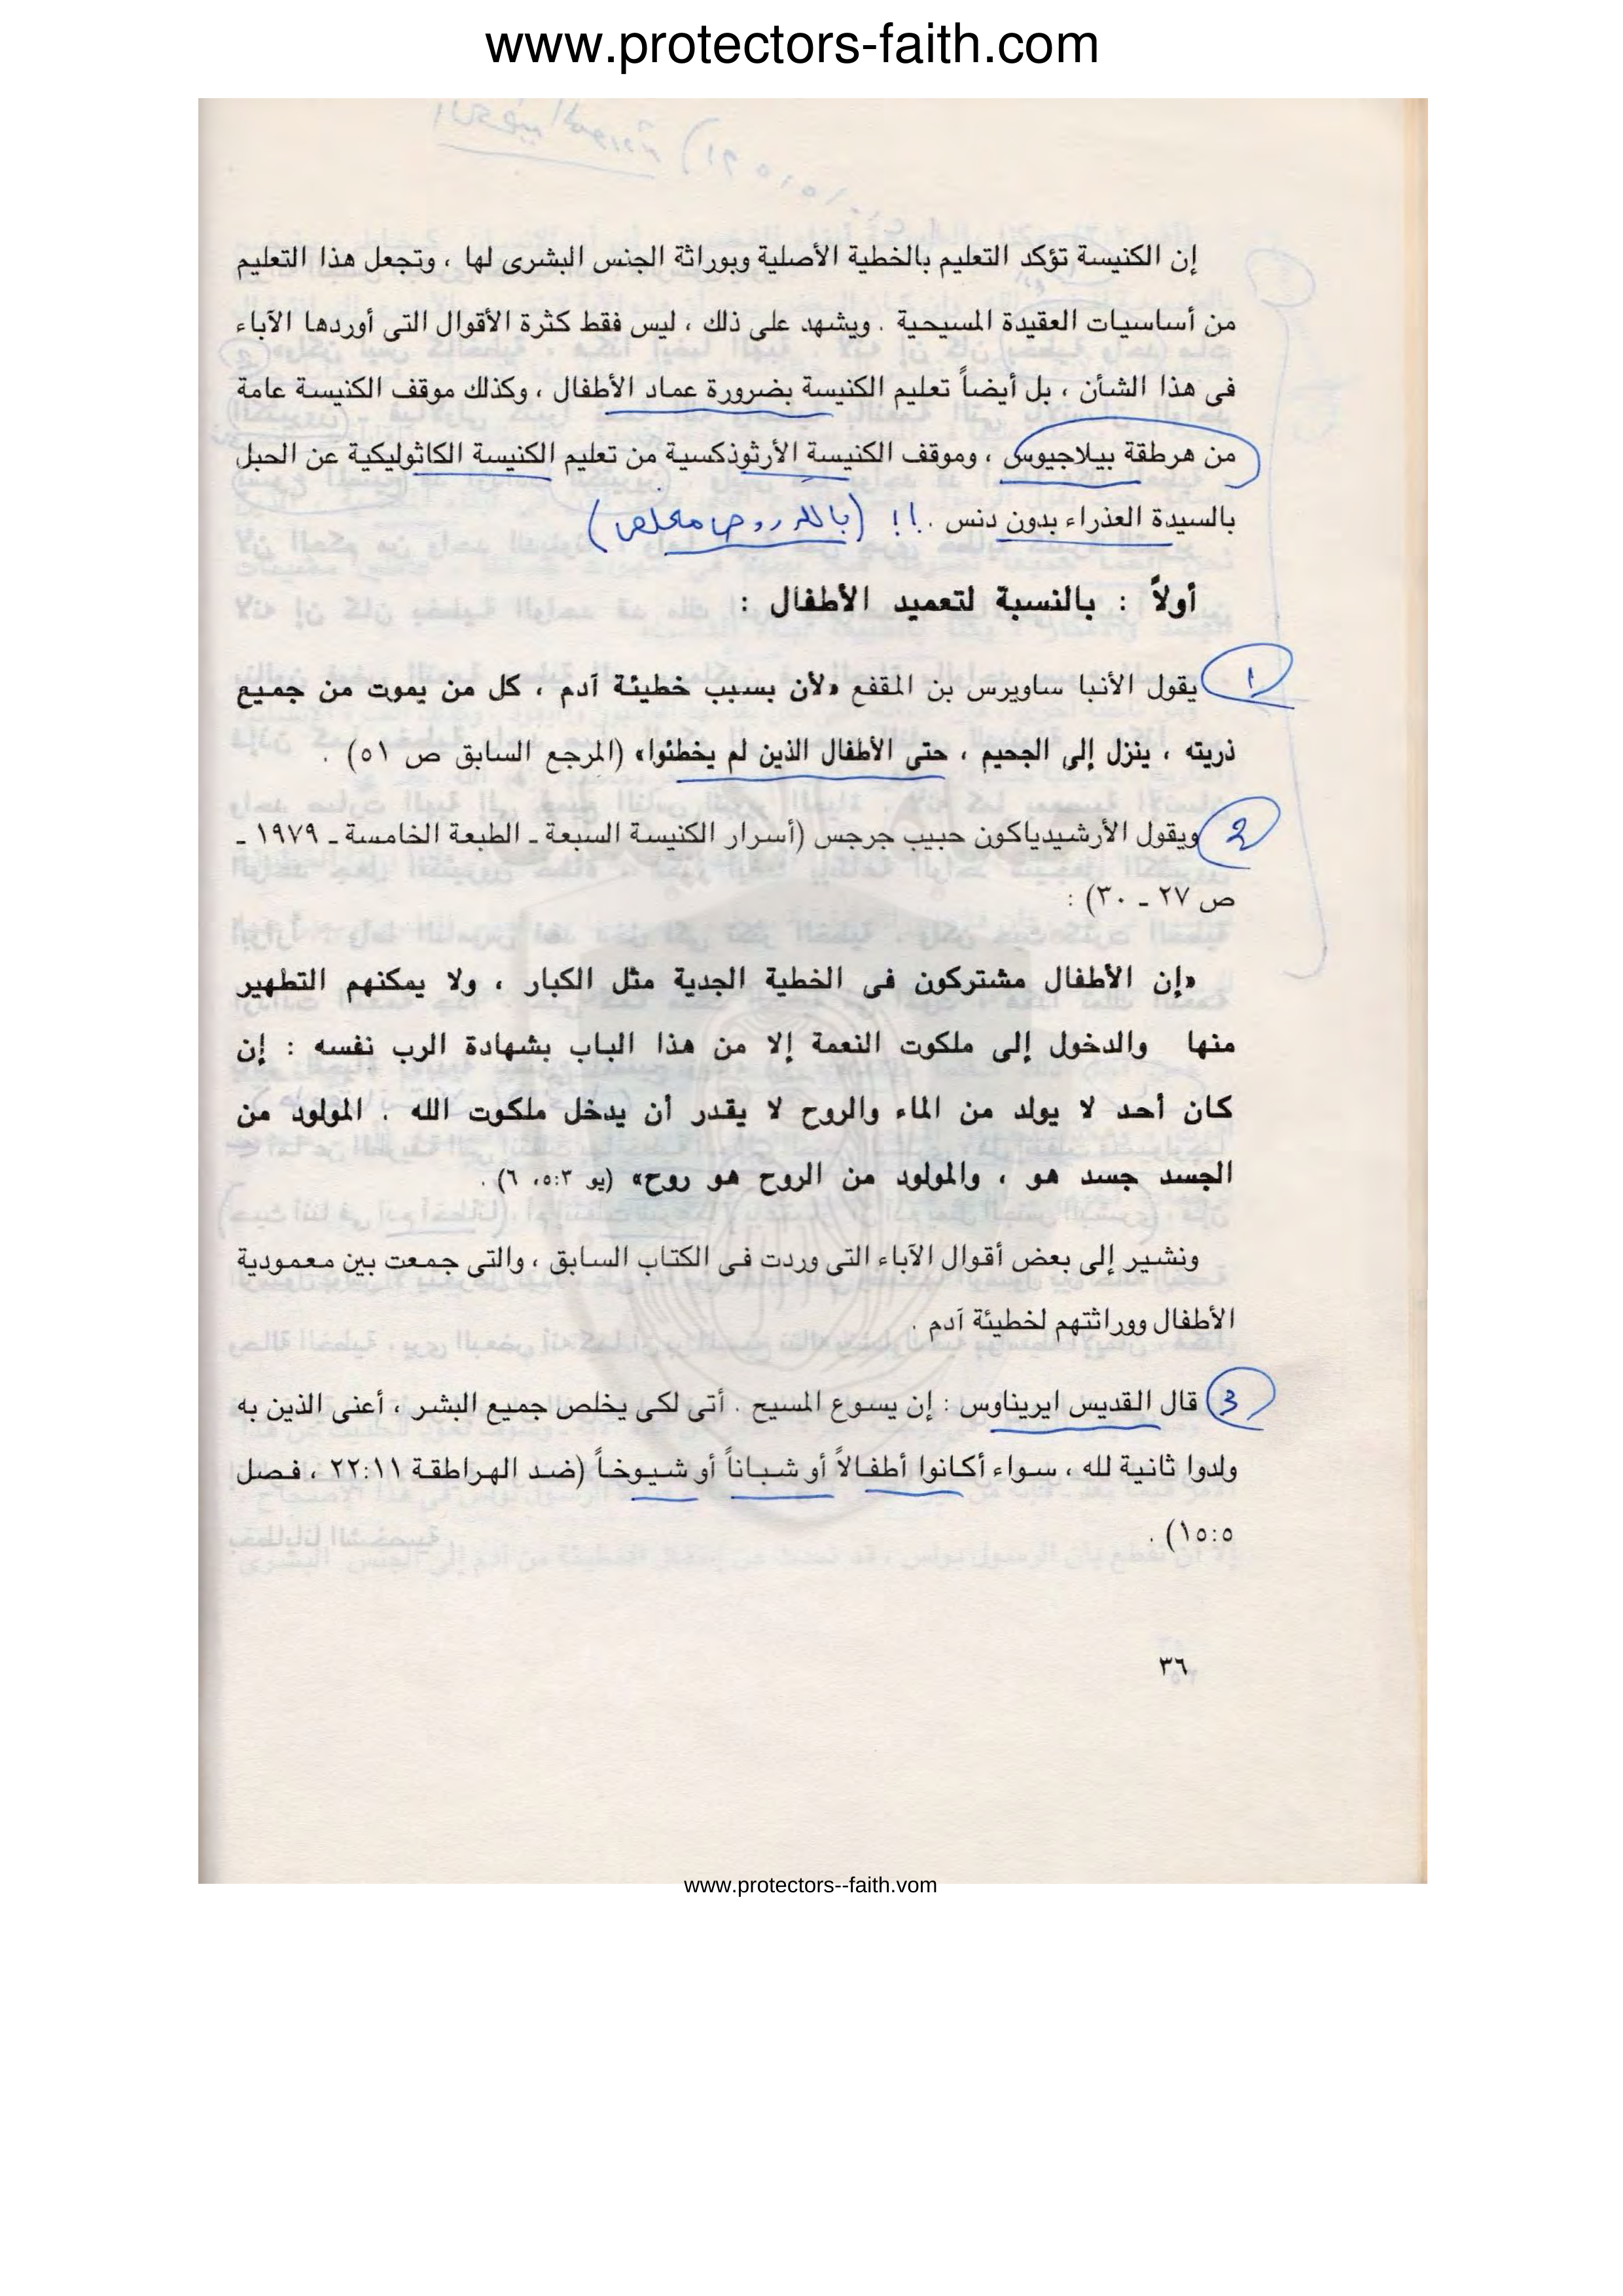 www.protectors-faith.com
إن الكنيسة تؤكد التعليم بالخطية الأصلية وبوراثة الجنس البشرى لها ، وتجعل هذا التعليم
من أساسيات العقيدة المسيحية . ويشهد على ذلك ، ليس فقط كثرة الأقوال التى أوردها الآباء
فى هذا الشأن ، بل أيضاً تعليم الكنيسة بضرورة عماد الأطفال ، وكذلك موقف الكنيسة عامة
من هرطقة بيلاجيوس ، وموقف الكنيسة الأرثوذكسية من تعليم الكنيسة الكاثوليكية عن الحبل
بالسيدة العذراء بدون دنس . !!
أولاً : بالنسبة لتعميد الأطفال :
1 يقول الأنبا ساويرس بن المقفع «لأن بسبب خطيئة آدم ، كل من يموت من جميع
ذريته ، ينزل إلى الجحيم ، حتى الأطفال الذين لم يخطئوا» (المرجع السابق ص ٥١) .
2 ويقول الأرشيدياكون حبيب جرجس (أسرار الكنيسة السبعة ـ الطبعة الخامسة ـ ١٩٧٩ ـ
ص ٢٧ ـ ٣٠) :
«إن الأطفال مشتركون فى الخطية الجدية مثل الكبار ، ولا يمكنهم التطهير
منها والدخول إلى ملكوت النعمة إلا من هذا الباب بشهادة الرب نفسه : إن
كان أحد لا يولد من الماء والروح لا يقدر أن يدخل ملكوت الله . المولود من
الجسد جسد هو ، والمولود من الروح هو روح» (يو ٥:٣، ٦) .
ونشير إلى بعض أقوال الآباء التى وردت فى الكتاب السابق ، والتى جمعت بين معمودية
الأطفال ووراثتهم لخطيئة آدم .
3 قال القديس ايريناوس : إن يسوع المسيح . أتى لكى يخلص جميع البشر ، أعنى الذين به
ولدوا ثانية لله ، سواء أكانوا أطفالاً أو شباناً أو شيوخاً (ضد الهراطقة ٢٢:١١ ، فصل
١٥:٥) .
٣٦
www.protectors--faith.vom